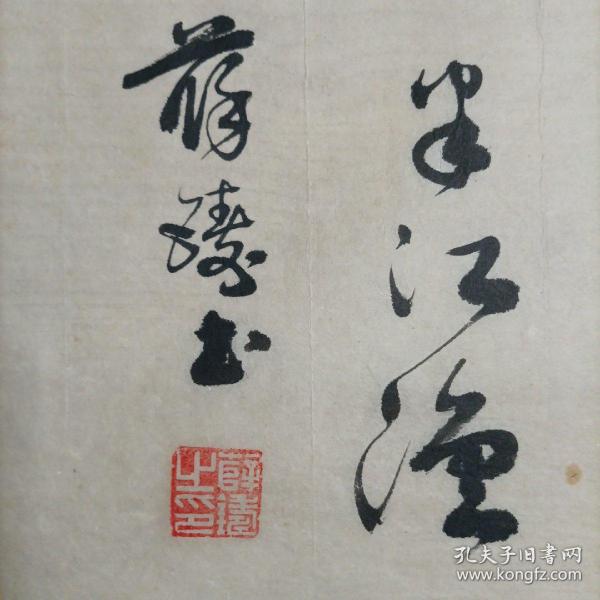 半江
薛 书
薛 之印
孔夫子旧书网
www.kongfz.com